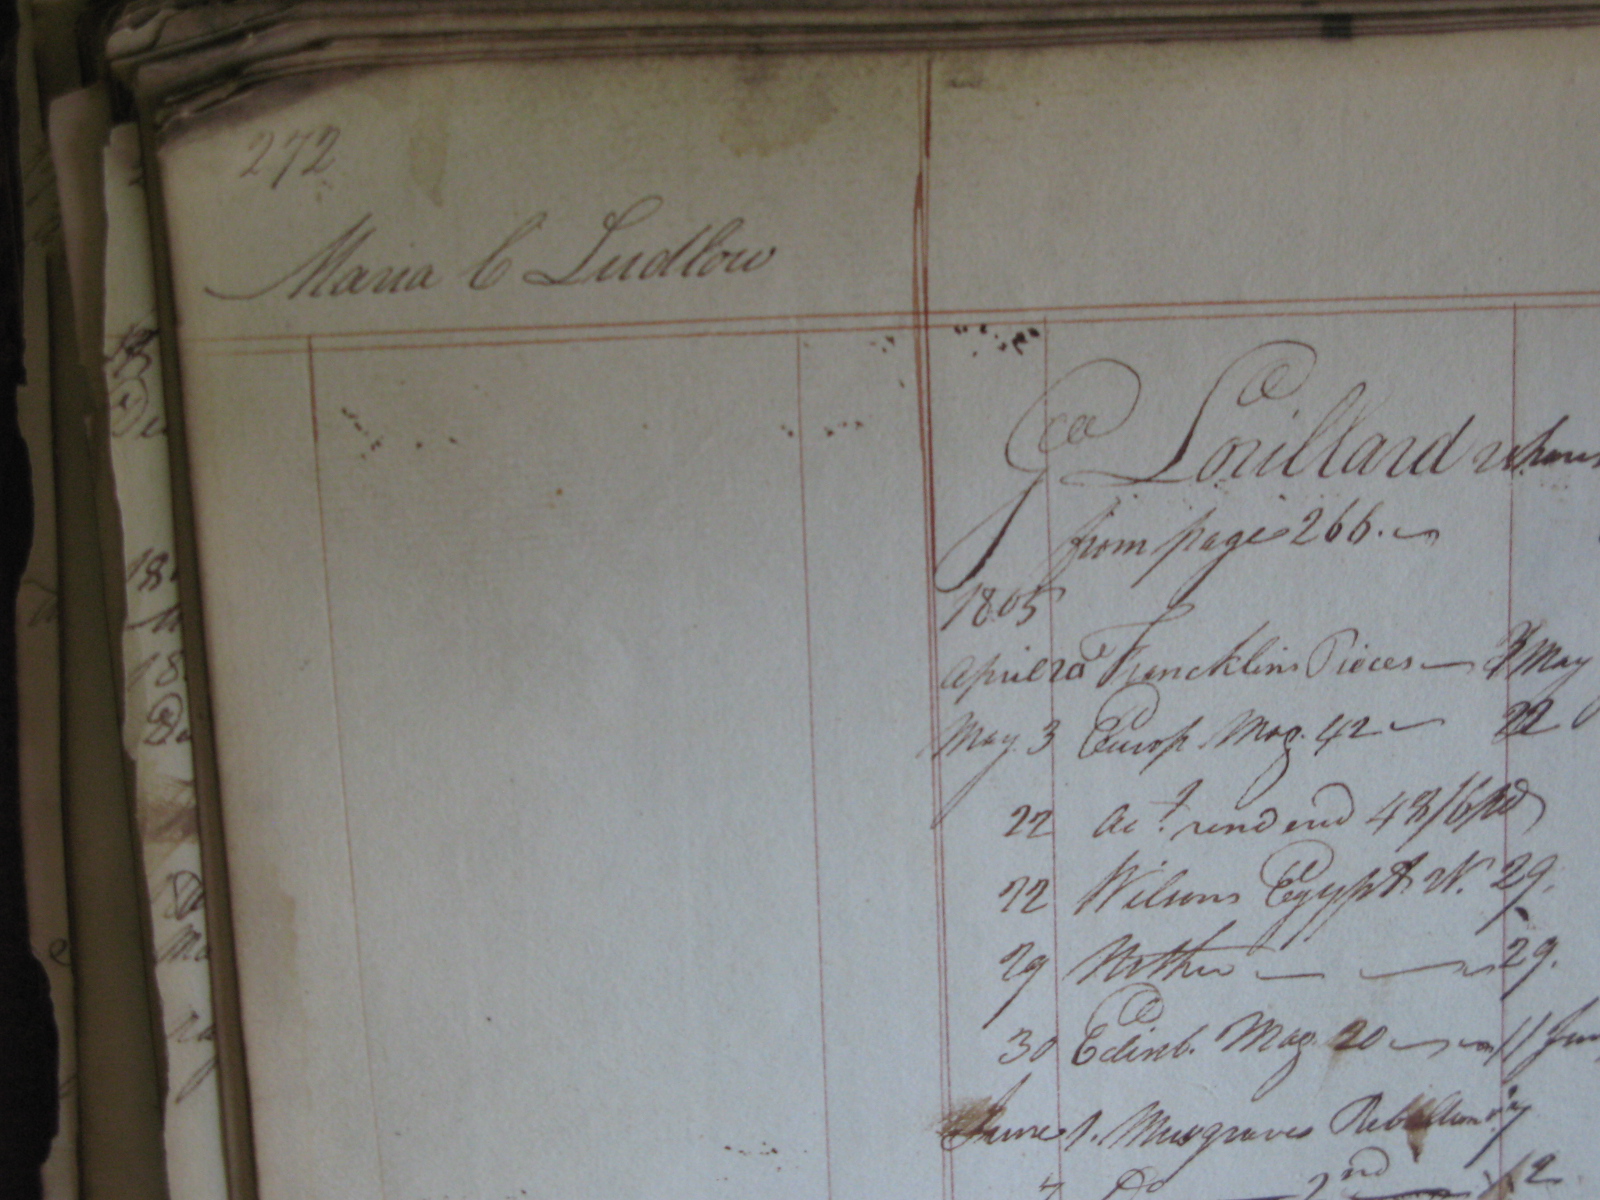 272
Maria C Ludlow
Geo Lorillard
from page 266.
1805
April 20 Francklins Pieces — 3 May
May 3 Europ. Mag. 42 — 22
22 Act. rendered 48/6 pd
22 Wilsons Egypt. W. 29.
29 Mother — — 29.
30 Edinb. Mag. 20 — 11 Jun
June 1. Musgraves Rebellion 7
7 Do 2nd 12